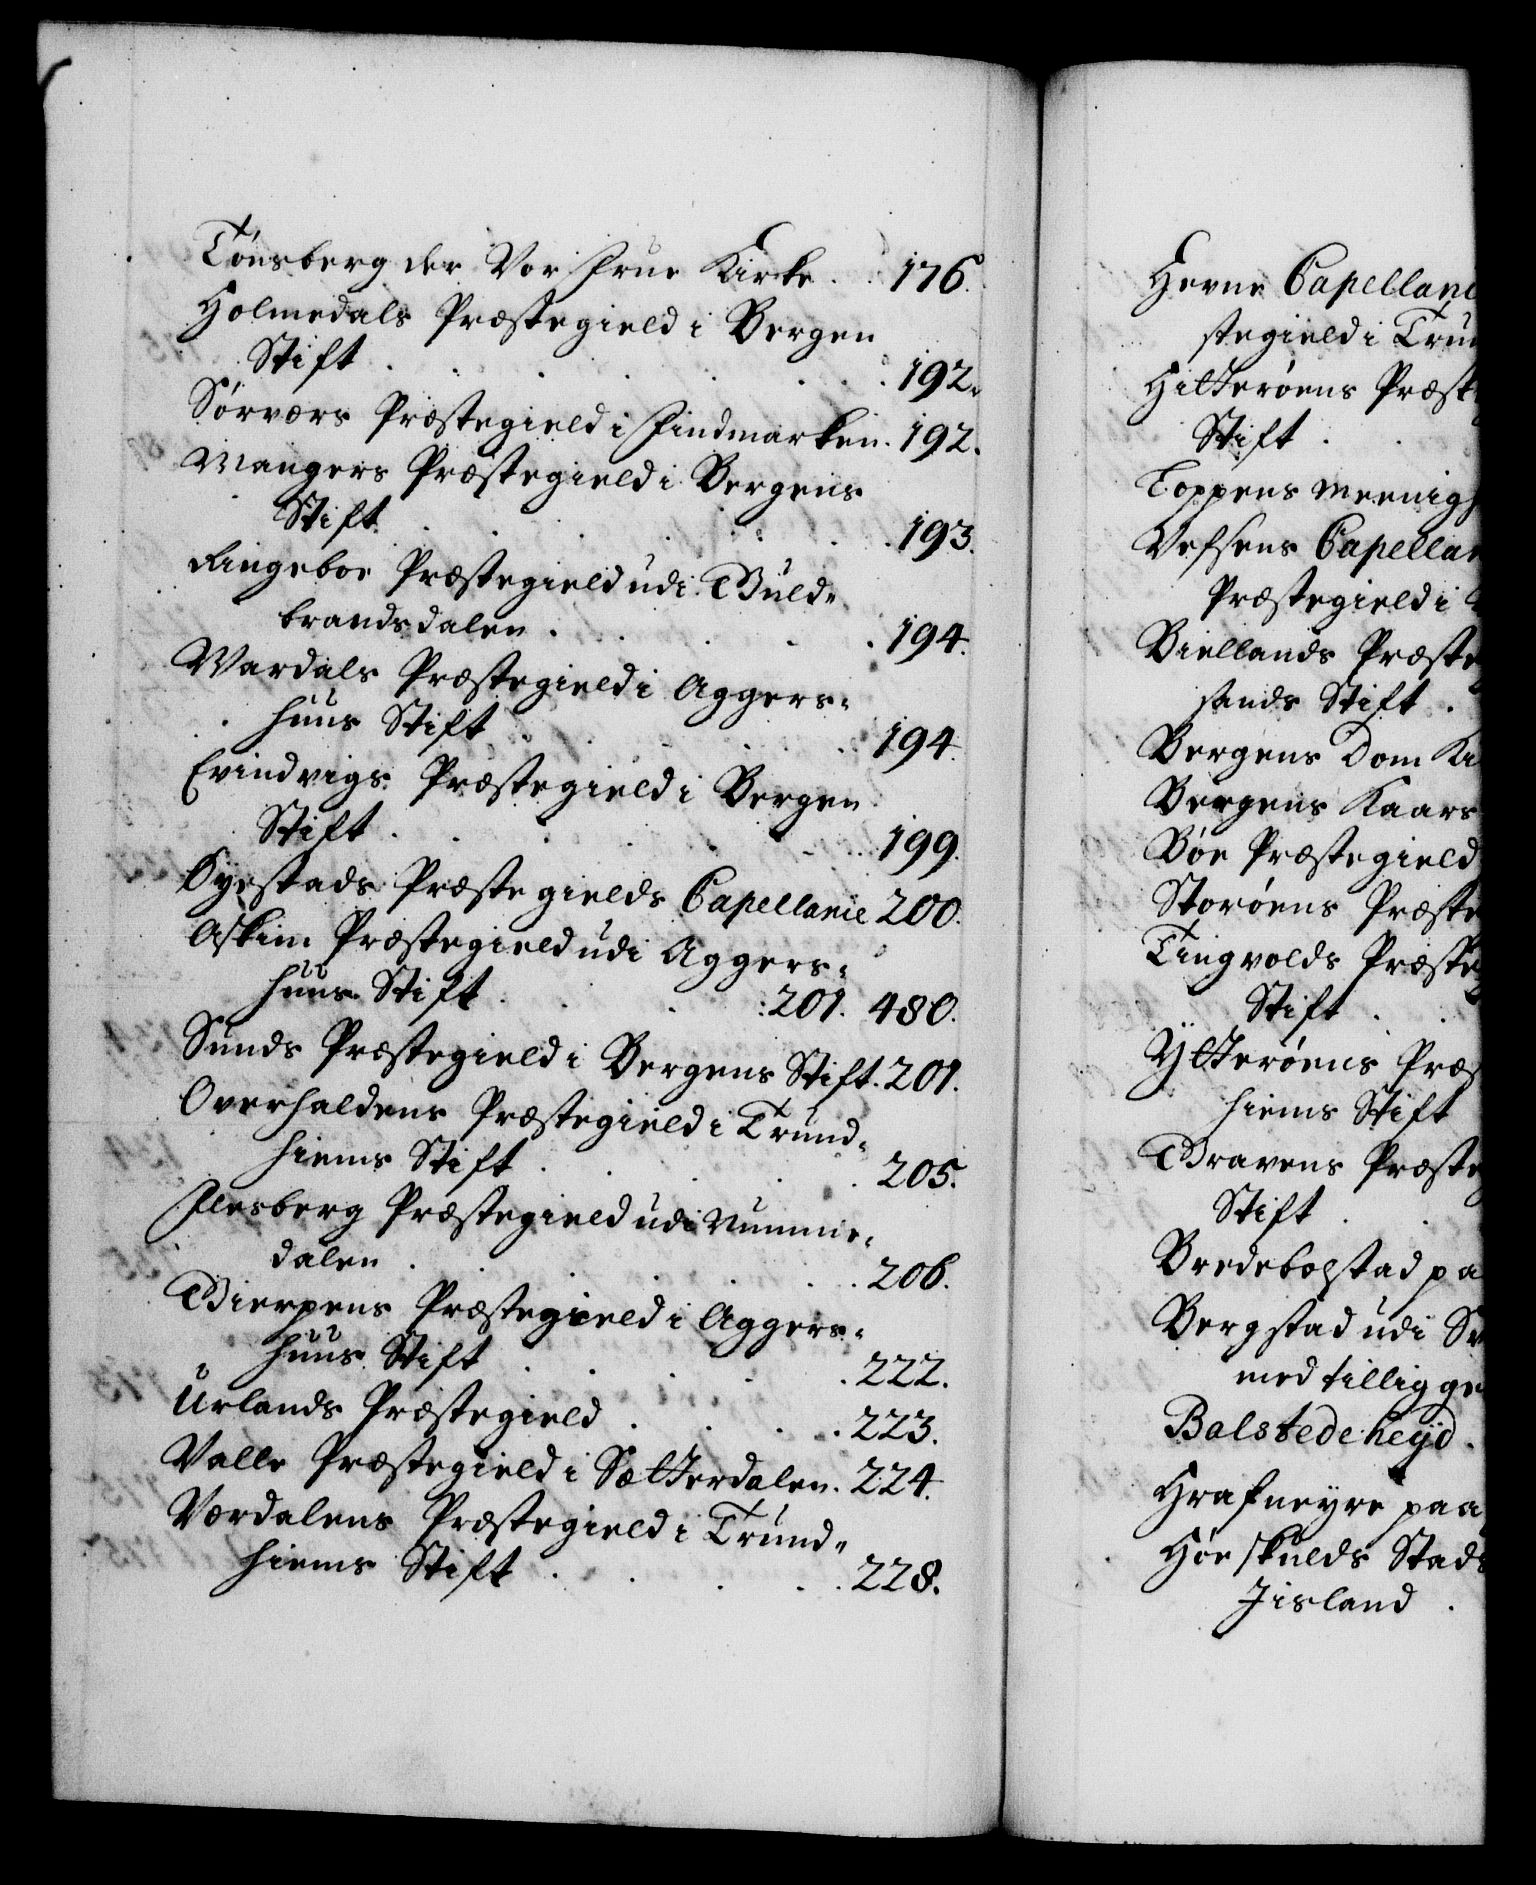 Tønsberg der Vor Frue Kirke . . 176.
Holmedals Præstegield i Bergen
Stift . . . . . . . 192.
Sørværs Præstegield i Findmarken. 192.
Mangers Præstegield i Bergens
Stift . . . . . . . 193.
Ringeboe Præstegield udi Guld-
brandsdalen . . . . . 194.
Wardals Præstegield i Aggers-
huus Stift . . . . . 194.
Evindvigs Præstegield i Bergen
Stift . . . . . . . 199.
Øyestads Præstegields Capellanie 200.
Askim Præstegield udi Aggers-
huus Stift . . . : 201. 480.
Sunds Præstegield i Bergens Stift. 201.
Overhaldens Præstegield i Trund-
hiems Stift . . . . . 205.
Flesberg Præstegield udi Numme-
dalen . . . . . . . 206.
Gierpens Præstegield i Aggers-
huus Stift . . . . . 222.
Urlands Præstegield . . . . 223.
Valle Præstegield i Sætterdalen. 224.
Værdalens Præstegield i Trund-
hiems Stift . . . . . 228.
Hevne Capellani
stegield i Trun
Hitterøens Præste
Stift . .
Toppens Meenigh
Vefsens Capellan
Præstegield i
Biellands Præste
sands Stift .
Bergens Dom Ki
Bergens Kaars
Bøe Præstegield
Storøens Præste
Tingvolds Præste
Stift . .
Ytterøens Præs
hiems Stift
Gravens Præste
Stift . .
Bredebolstad pa
Bergstad udi S
med tilligge
Balstedeheyd .
Hrafneyre paa
Høeskulds Stads
Jisland .